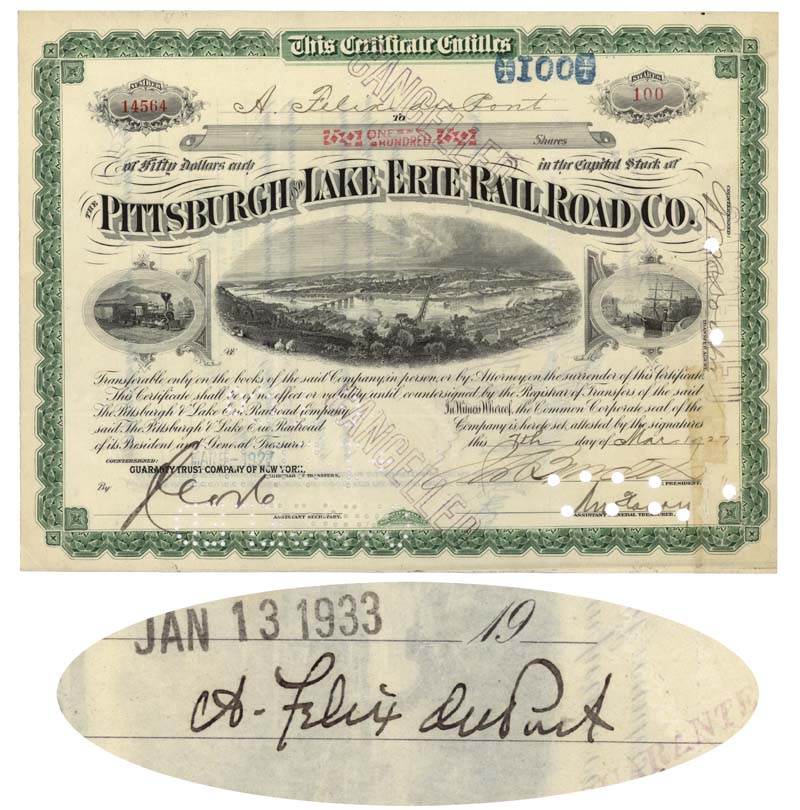 This Certificate Entitles
100
NUMBER
14564
SHARES
100
A. Felix du Pont
TO
ONE HUNDRED
Shares
of Fifty Dollars each
in the Capital Stock of
THE PITTSBURGH AND LAKE ERIE RAIL ROAD CO.
CANCELLED
Transferable only on the books of the said Company, in person, or by Attorney, on the surrender of this Certificate.
This Certificate shall be of no effect or validity until countersigned by the Registrar of Transfers of the said
The Pittsburgh & Lake Erie Railroad Company
In Witness Whereof, the Common Corporate seal of the
said The Pittsburgh & Lake Erie Railroad
Company is hereto set, attested by the signatures
of its President and General Treasurer
this 7th day of Mar. 1927
COUNTERSIGNED:
GUARANTY TRUST COMPANY OF NEW YORK,
REGISTRAR OF TRANSFERS,
PRESIDENT.
By
ASSISTANT SECRETARY.
ASSISTANT GENERAL TREASURER.
CANCELLED
JAN 13 1933 19
A. Felix duPont